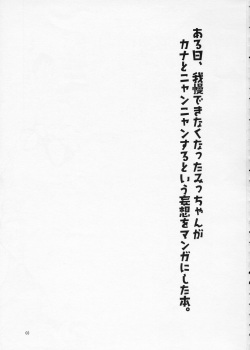 ある日、我慢できなくなったみっちゃんが
カナとニャンニャンするという妄想を
マンガにした本。